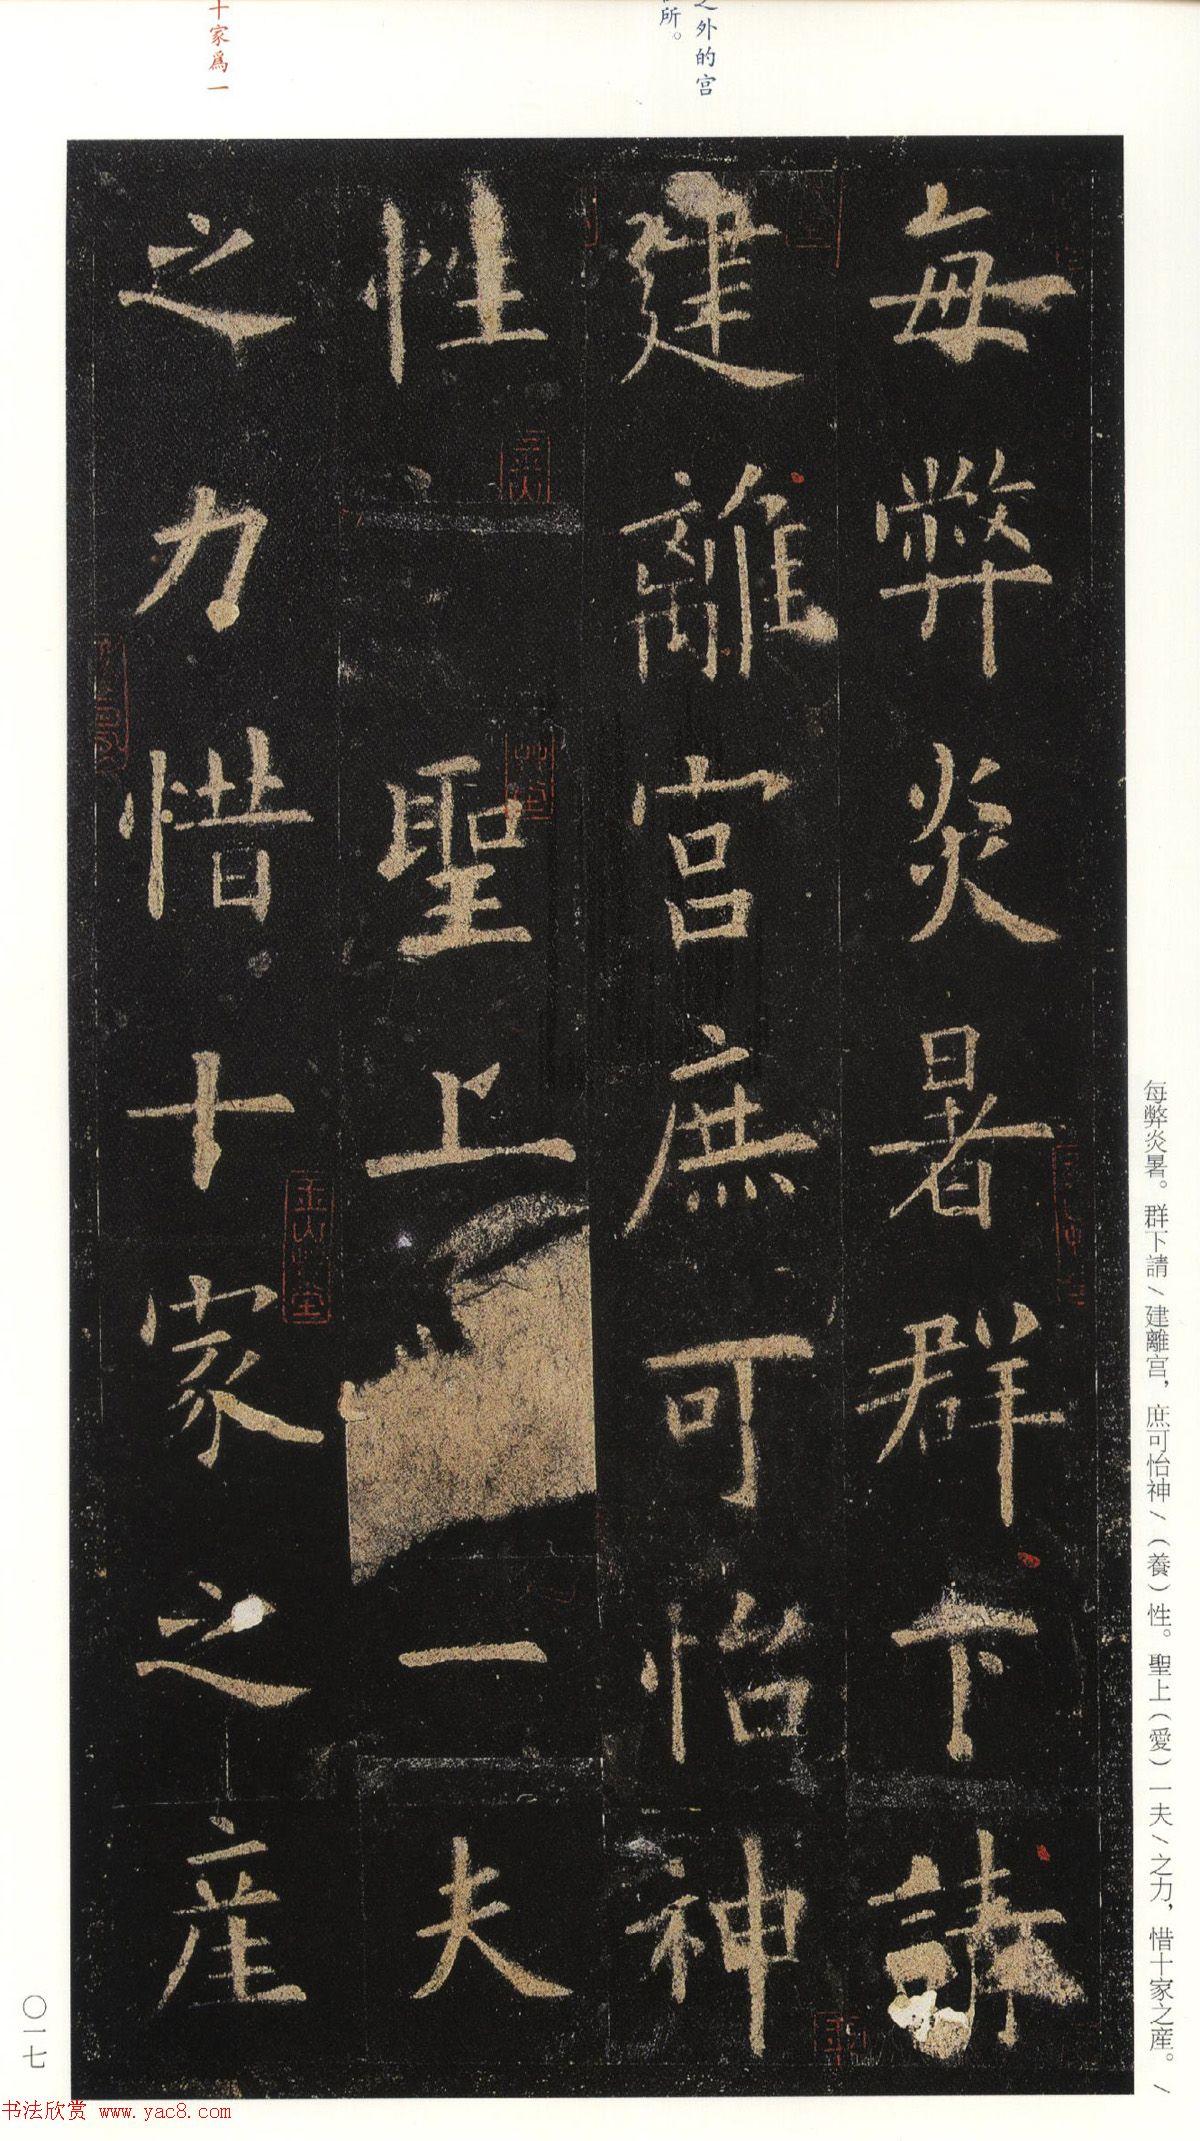 之外的宮
所。
十家爲一
每弊炎暑群下請
建離宮庶可怡神
性聖上一夫
之力惜十家之産
每弊炎暑。群下請/建離宮，庶可怡神/（養）性。聖上（愛）一夫/之力，惜十家之産。/
〇一七
书法欣赏 www.yac8.com